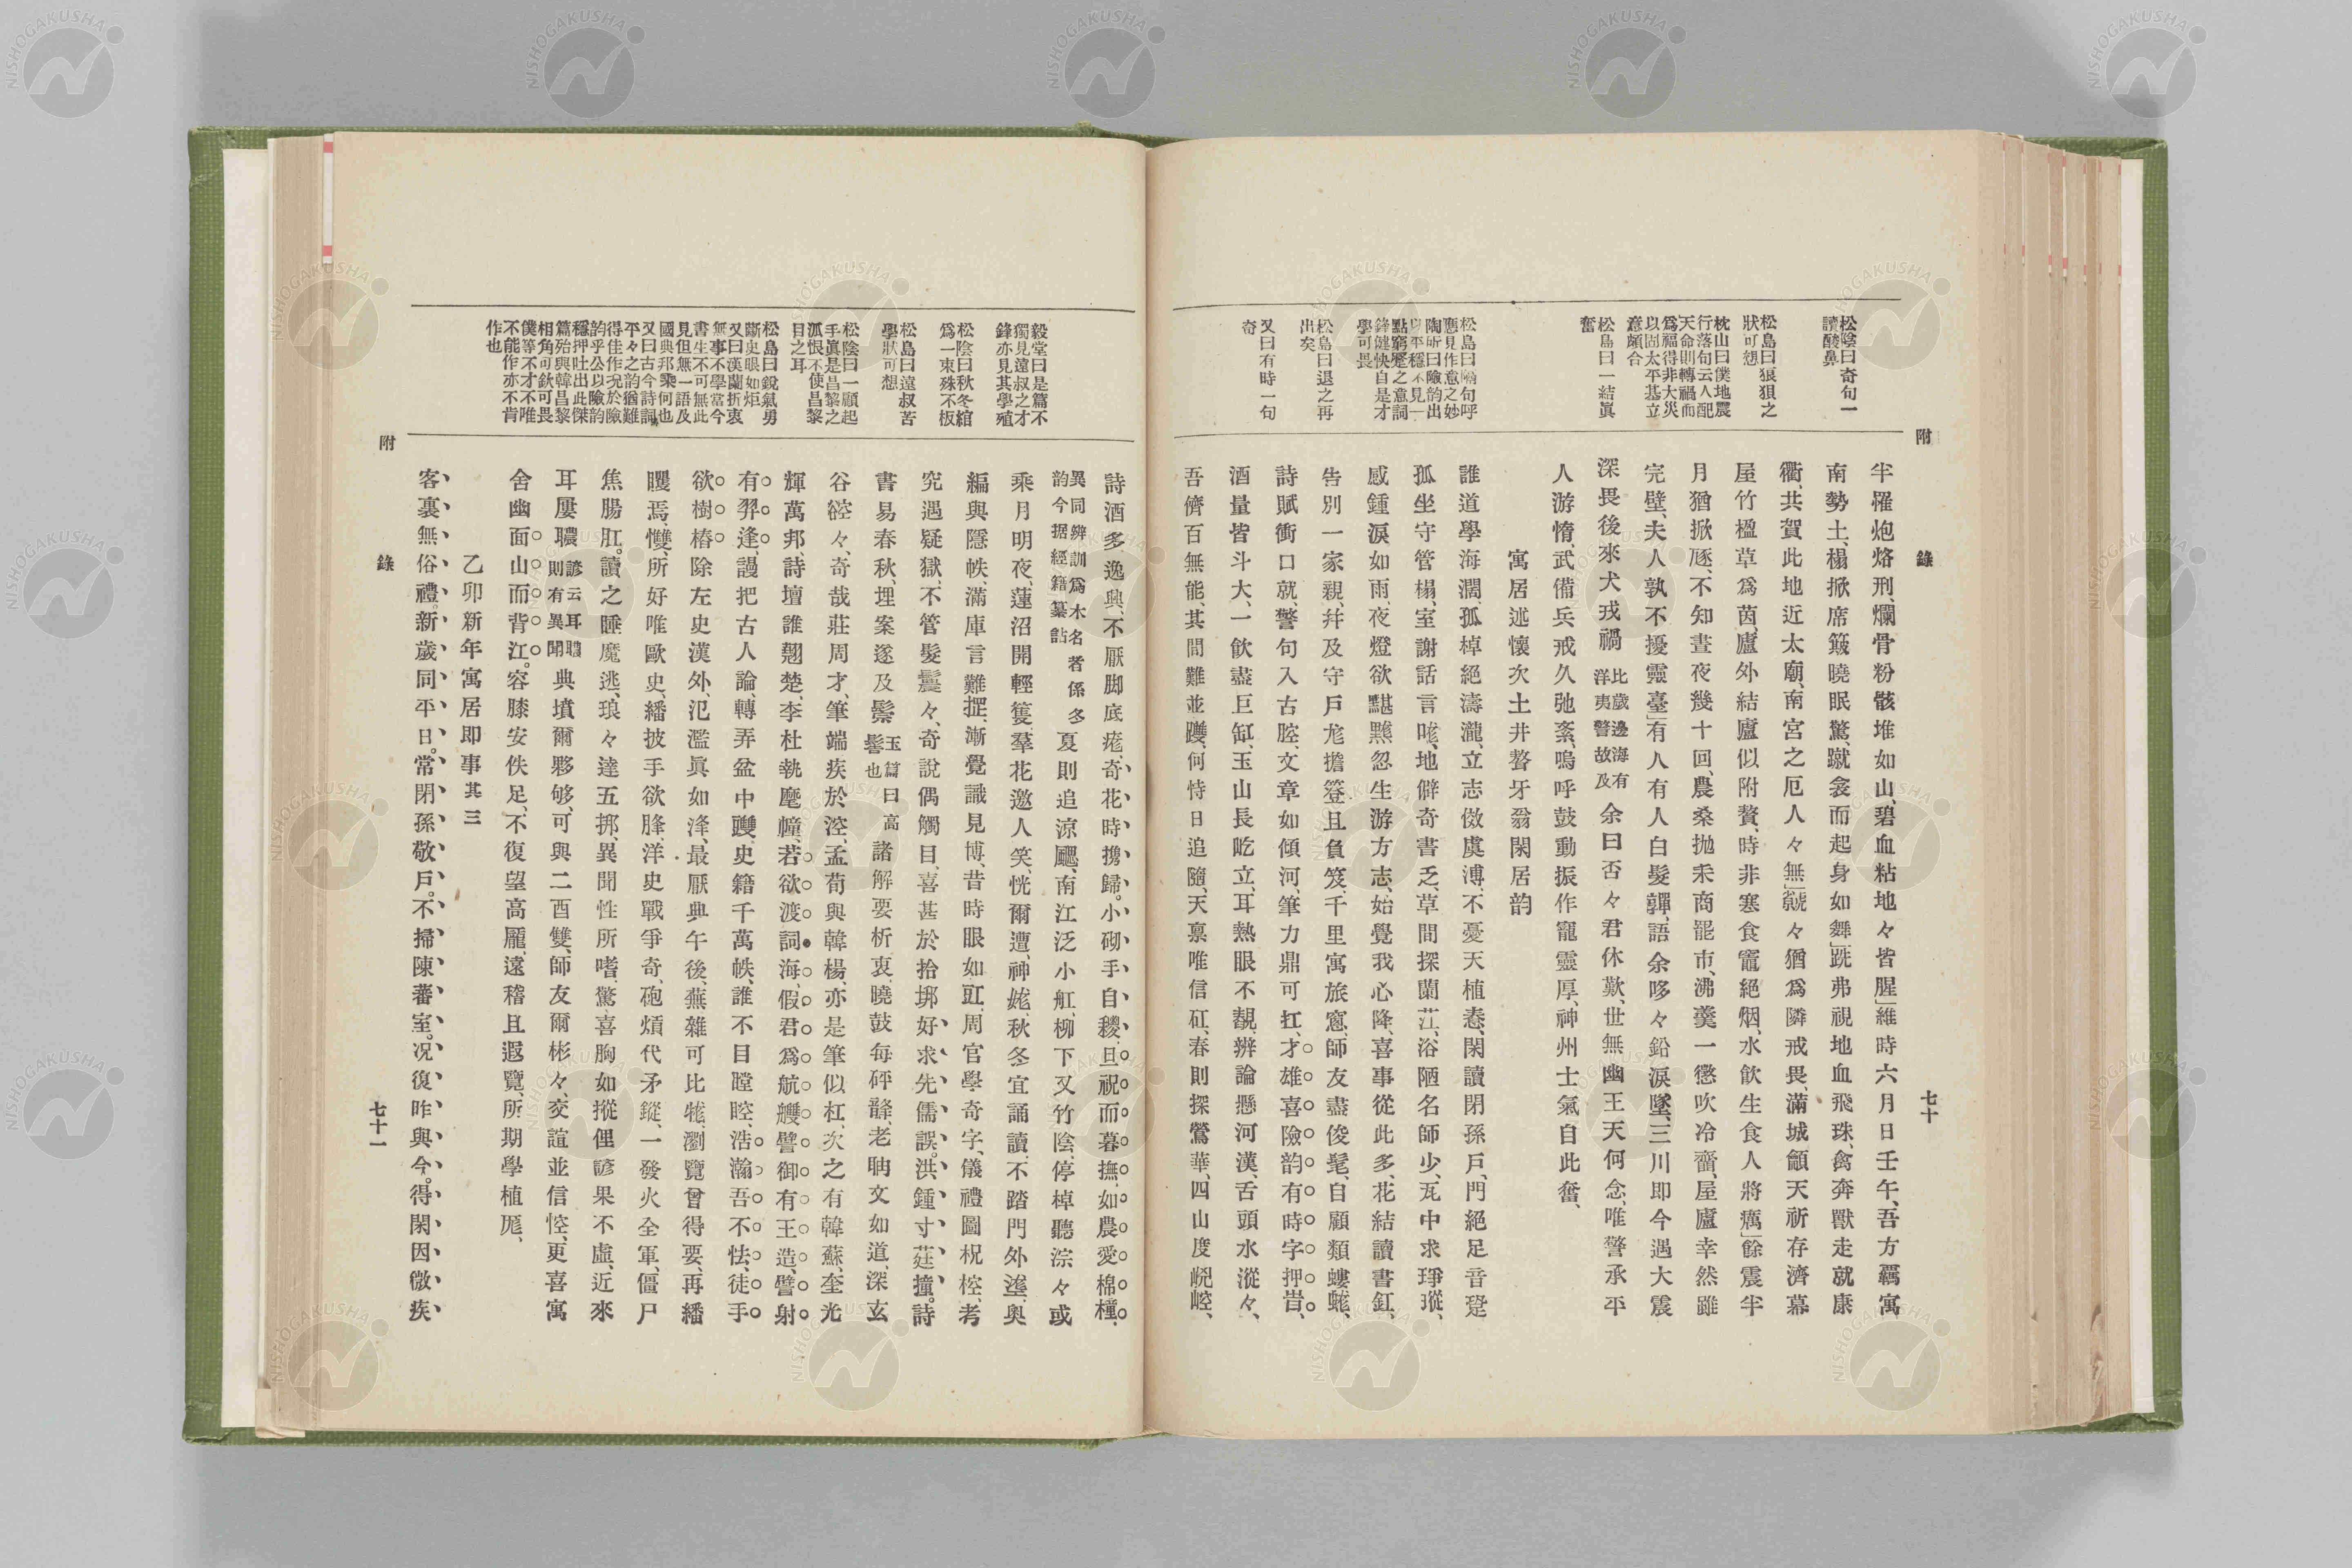 附
錄
七十
松陰曰奇句一
讀酸鼻
松島曰狼狽之
狀可想
枕山曰僕地震
行落句云人配
天命則轉禍而
爲福得非大災
以固太平基立
意頗合
松島曰一結眞
奮
松島曰隣句呼
應見作意之妙
陶所曰險韵出
以平穩不見一
點窮蹙之意詞
鋒健快自是才
學可畏
松島曰退之再
出矣
又曰有時一句
奇
半罹炮烙刑、爛骨粉骸堆如山、碧血粘地々皆腥」維時六月日壬午、吾方羈寓
南勢土、榻掀席簸曉眠驚、蹴衾而起身如舞」跣弗視地血飛珠、禽奔獸走就康
衢、共賀此地近太廟、南宮之厄人々無」虩々猶爲隣戒畏、滿城籲天祈存濟、幕
屋竹楹草爲茵、廬外結廬似附贅、時非寒食竈絕烟、水飲生食人將癘」餘震半
月猶掀豗、不知晝夜幾十回、農桑抛耒商罷市、沸羹一懲吹冷齏、屋廬幸然雖
完壁、夫人孰不擾靈臺」有人有人白髮䩥、語余哆々鉛淚墜、三川即今遇大震
深畏後來犬戎禍
比歲邊海有
洋夷警故及
余曰否々君休歎、世無幽王天何念、唯警承平
人游惰、武備兵戒久弛紊、嗚呼鼓動振作寵靈厚、神州士氣自此奮、
寓居述懷次土井聱牙翁閑居韵
誰道學海濶、孤棹絕濤瀧、立志傚虞溥、不憂天植惷、閑讀閉孫戶、門絕足音跫
孤坐守管榻、室謝話言哤、地僻奇書乏、草間探蘭茳、浴陋名師少、瓦中求琤瑽、
感鍾淚如雨、夜燈欲黮黰、忽生游方志、始覺我心降、喜事從此多、花結讀書釭、
告別一家親、幷及守戶尨、擔簦且負笈、千里寓旅窓、師友盡俊髦、自顧類螻蛖、
詩賦衝口就、警句入古腔、文章如傾河、筆力鼎可扛、才雄喜險韵、有時字押㟁、
酒量皆斗大、一飲盡巨缸、玉山長屹立、耳熱眼不覩、辨論懸河漢、舌頭水漎々、
吾儕百無能、其間難並躞、何恃日追隨、天禀唯信矼、春則探鶯華、四山度崐崆、
毅堂曰是篇不
獨見遠叔之才
鋒亦見其學殖
松陰曰秋冬綰
爲一束殊不板
松島曰遠叔苦
學狀可想
松陰曰一顧起
手眞是昌黎之
派恨不使昌黎
目之耳
松島曰銳氣勇
斷史眼如炬
又曰漢蘭折衷
無事不學常今
書生不可無此
見但無一語及
國典邦乘何也
又曰古今詩詞
平々之韵猶難
得佳作况於險
韵乎公以險韵
穩押吐出此傑
篇殆與韓昌黎
相角可欽可畏
僕等不才不唯
不能作亦不肯
作也
詩酒多逸興、不厭脚底痝、奇花時携歸。小砌手自稷、旦祝而暮撫、如農愛棉橦、
異同辨訓爲木名者係多
韵今据經籍纂詁
夏則追涼飃、南江泛小舡、柳下又竹陰、停棹聽淙々、或
乘月明夜、蓮沼開輕篗、羣花邀人笑、恍爾遭神㛗、秋冬宜誦讀、不踏門外䢠、奧
編與隱帙、滿庫言難摼、漸覺識見博、昔時眼如豇、周官學奇字、儀禮圖柷椌、考
究遇疑獄、不管髮鬤々、奇說偶觸目、喜甚於拾㧍、好求先儒誤。洪鍾寸莛撞。詩
書易春秋、埋案遂及鬃
玉篇曰高
髻也
諸解要析衷、曉鼓每砰韸、老聃文如道、深玄
谷谾々、奇哉莊周才、筆端疾於涳、孟荀與韓楊、亦是筆似杠、次之有韓蘇、奎光
輝萬邦、詩壇誰翹楚、李杜執麾幢、若欲渡詞海、假君爲航艭、譬御有王造、譬射
有羿逄、謾把古人論、轉弄盆中躞、史籍千萬帙、誰不目瞠䀪、浩瀚吾不怯、徒手
欲樹樁、除左史漢外、氾濫眞如浲、最厭典午後、蕪雜可比牻、瀏覽曾得要、再繙
矆焉㦼、所好唯歐史、繙披手欲胮、洋史戰爭奇、砲熕代矛鏦、一發火全軍、僵尸
焦腸肛。讀之睡魔逃、琅々達五㧍、異聞性所嗜、驚喜胸如摐、俚諺果不虛、近來
耳屢聵
諺云耳聵
則有異聞
典墳爾夥够、可與二酉雙、師友爾彬々、交誼並信悾、更喜寓
舍幽、面山而背江。容膝安佚足、不復望高龎、遠稽且遐覽、所期學植厖、
乙卯新年寓居即事其三
客裏無俗禮。新歲同平日。常閉孫敬戶。不掃陳蕃室。况復昨與今。得閑因微疾
附
錄
七十一